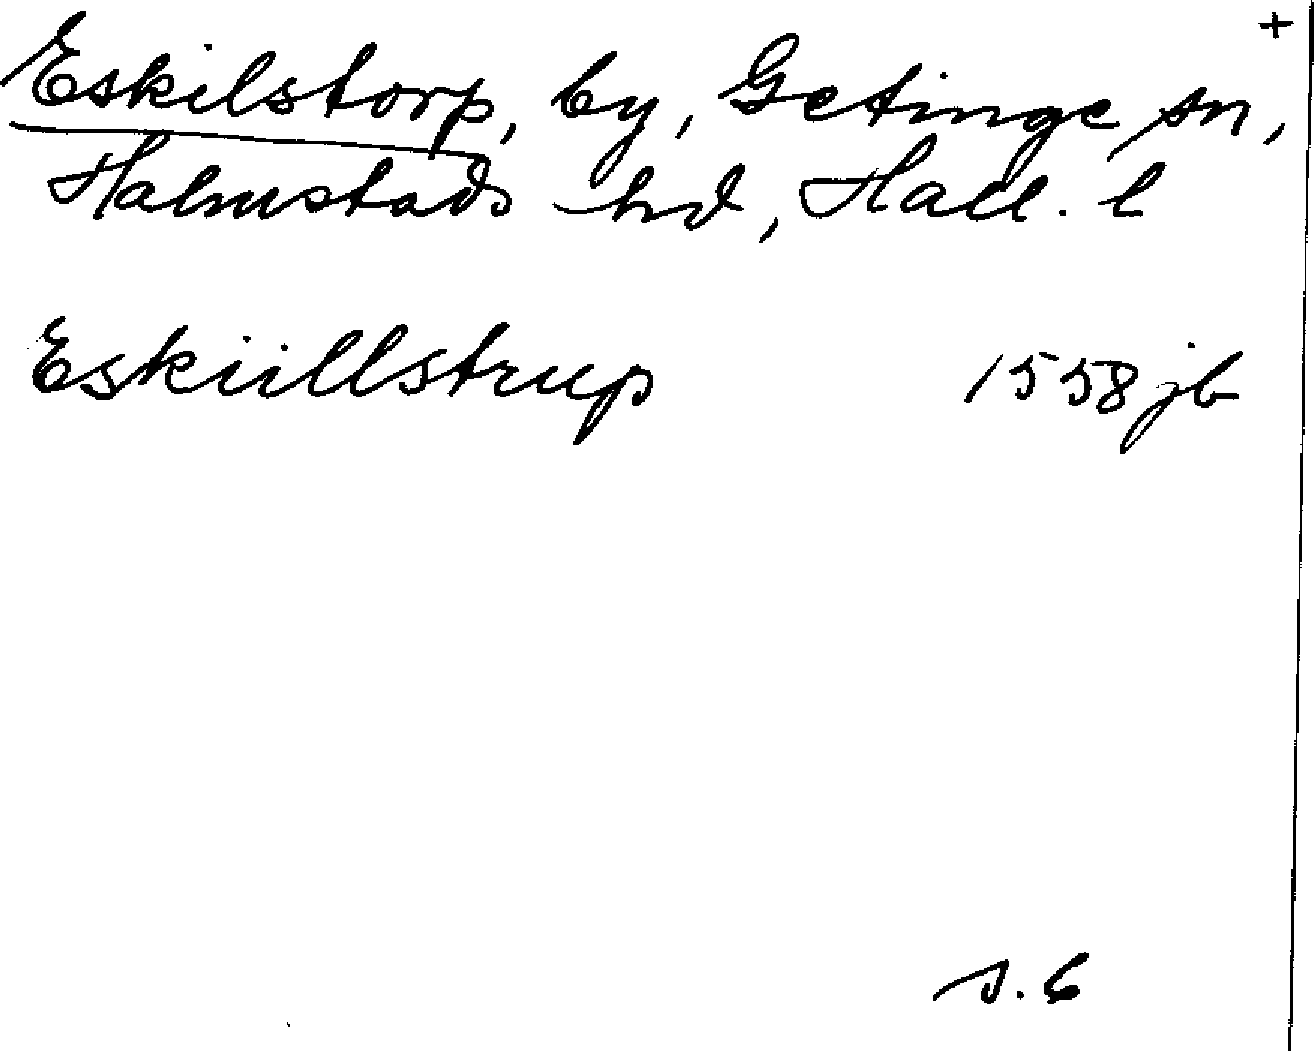 +
Eskilstorp, by, Getinge sn,
Halmstads hd, Hall. l
Eskiillstrup 1558 jb
s. 6